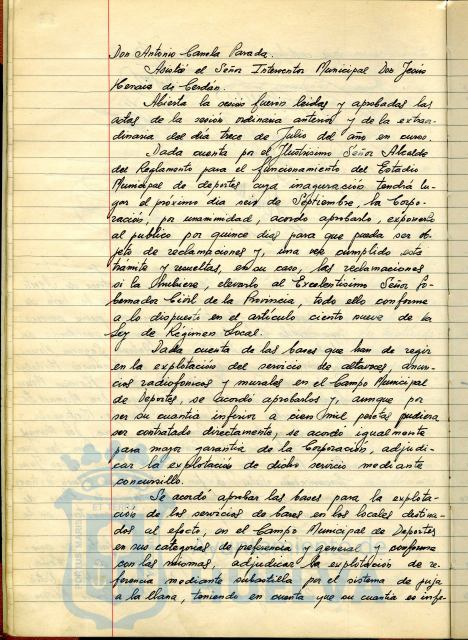 Don Antonio Canela Parada.
Asistió el Señor Interventor Municipal Don Jesús
de Cerdán.
Abierta la sesión fueron leidas y aprobadas las
actas de la sesión ordinaria anterior y de la extraor-
dinaria del día trece de Julio del año en curso.
Dada cuenta por el Ilustrisimo Señor Alcalde
del Reglamento para el funcionamiento del Estadio
Municipal de deportes cuya inauguración tendrá lu-
gar el próximo dia seis de Septiembre, la Corpo-
ración, por unanimidad, acordó aprobarlo, exponerlo
al publico por quince dias para que pueda ser ob-
jeto de reclamaciones y, una vez cumplido este
trámite y resueltas, en su caso, las reclamaciones
si la hubiere, elevarlo al Excelentisimo Señor Go-
bernador Civil de la Provincia, todo ello conforme
a lo dispuesto en el artículo ciento nueve de la
Ley de Régimen Local.
Dada cuenta de las bases que han de regir
en la explotación del servicio de altavoces, anun-
cios radiofonicos y murales en el Campo Municipal
de Deportes, se acordó aprobarlos y, aunque por
ser su cuantia inferior a cien mil pesetas pudiera
ser contratado directamente, se acordó igualmente
para mayor garantia de la Corporación, adjudi-
car la explotación de dicho servicio mediante
concursillo.
Se acordó aprobar las bases para la explota-
ción de los servicios de bares en los locales destina-
dos al efecto, en el Campo Municipal de Deportes
en sus categorias de preferencia y general y conforme
con las mismas, adjudicar la explotación de re-
ferencia mediante subastilla por el sistema de puja
a la llana, teniendo en cuenta que su cuantia es infe-